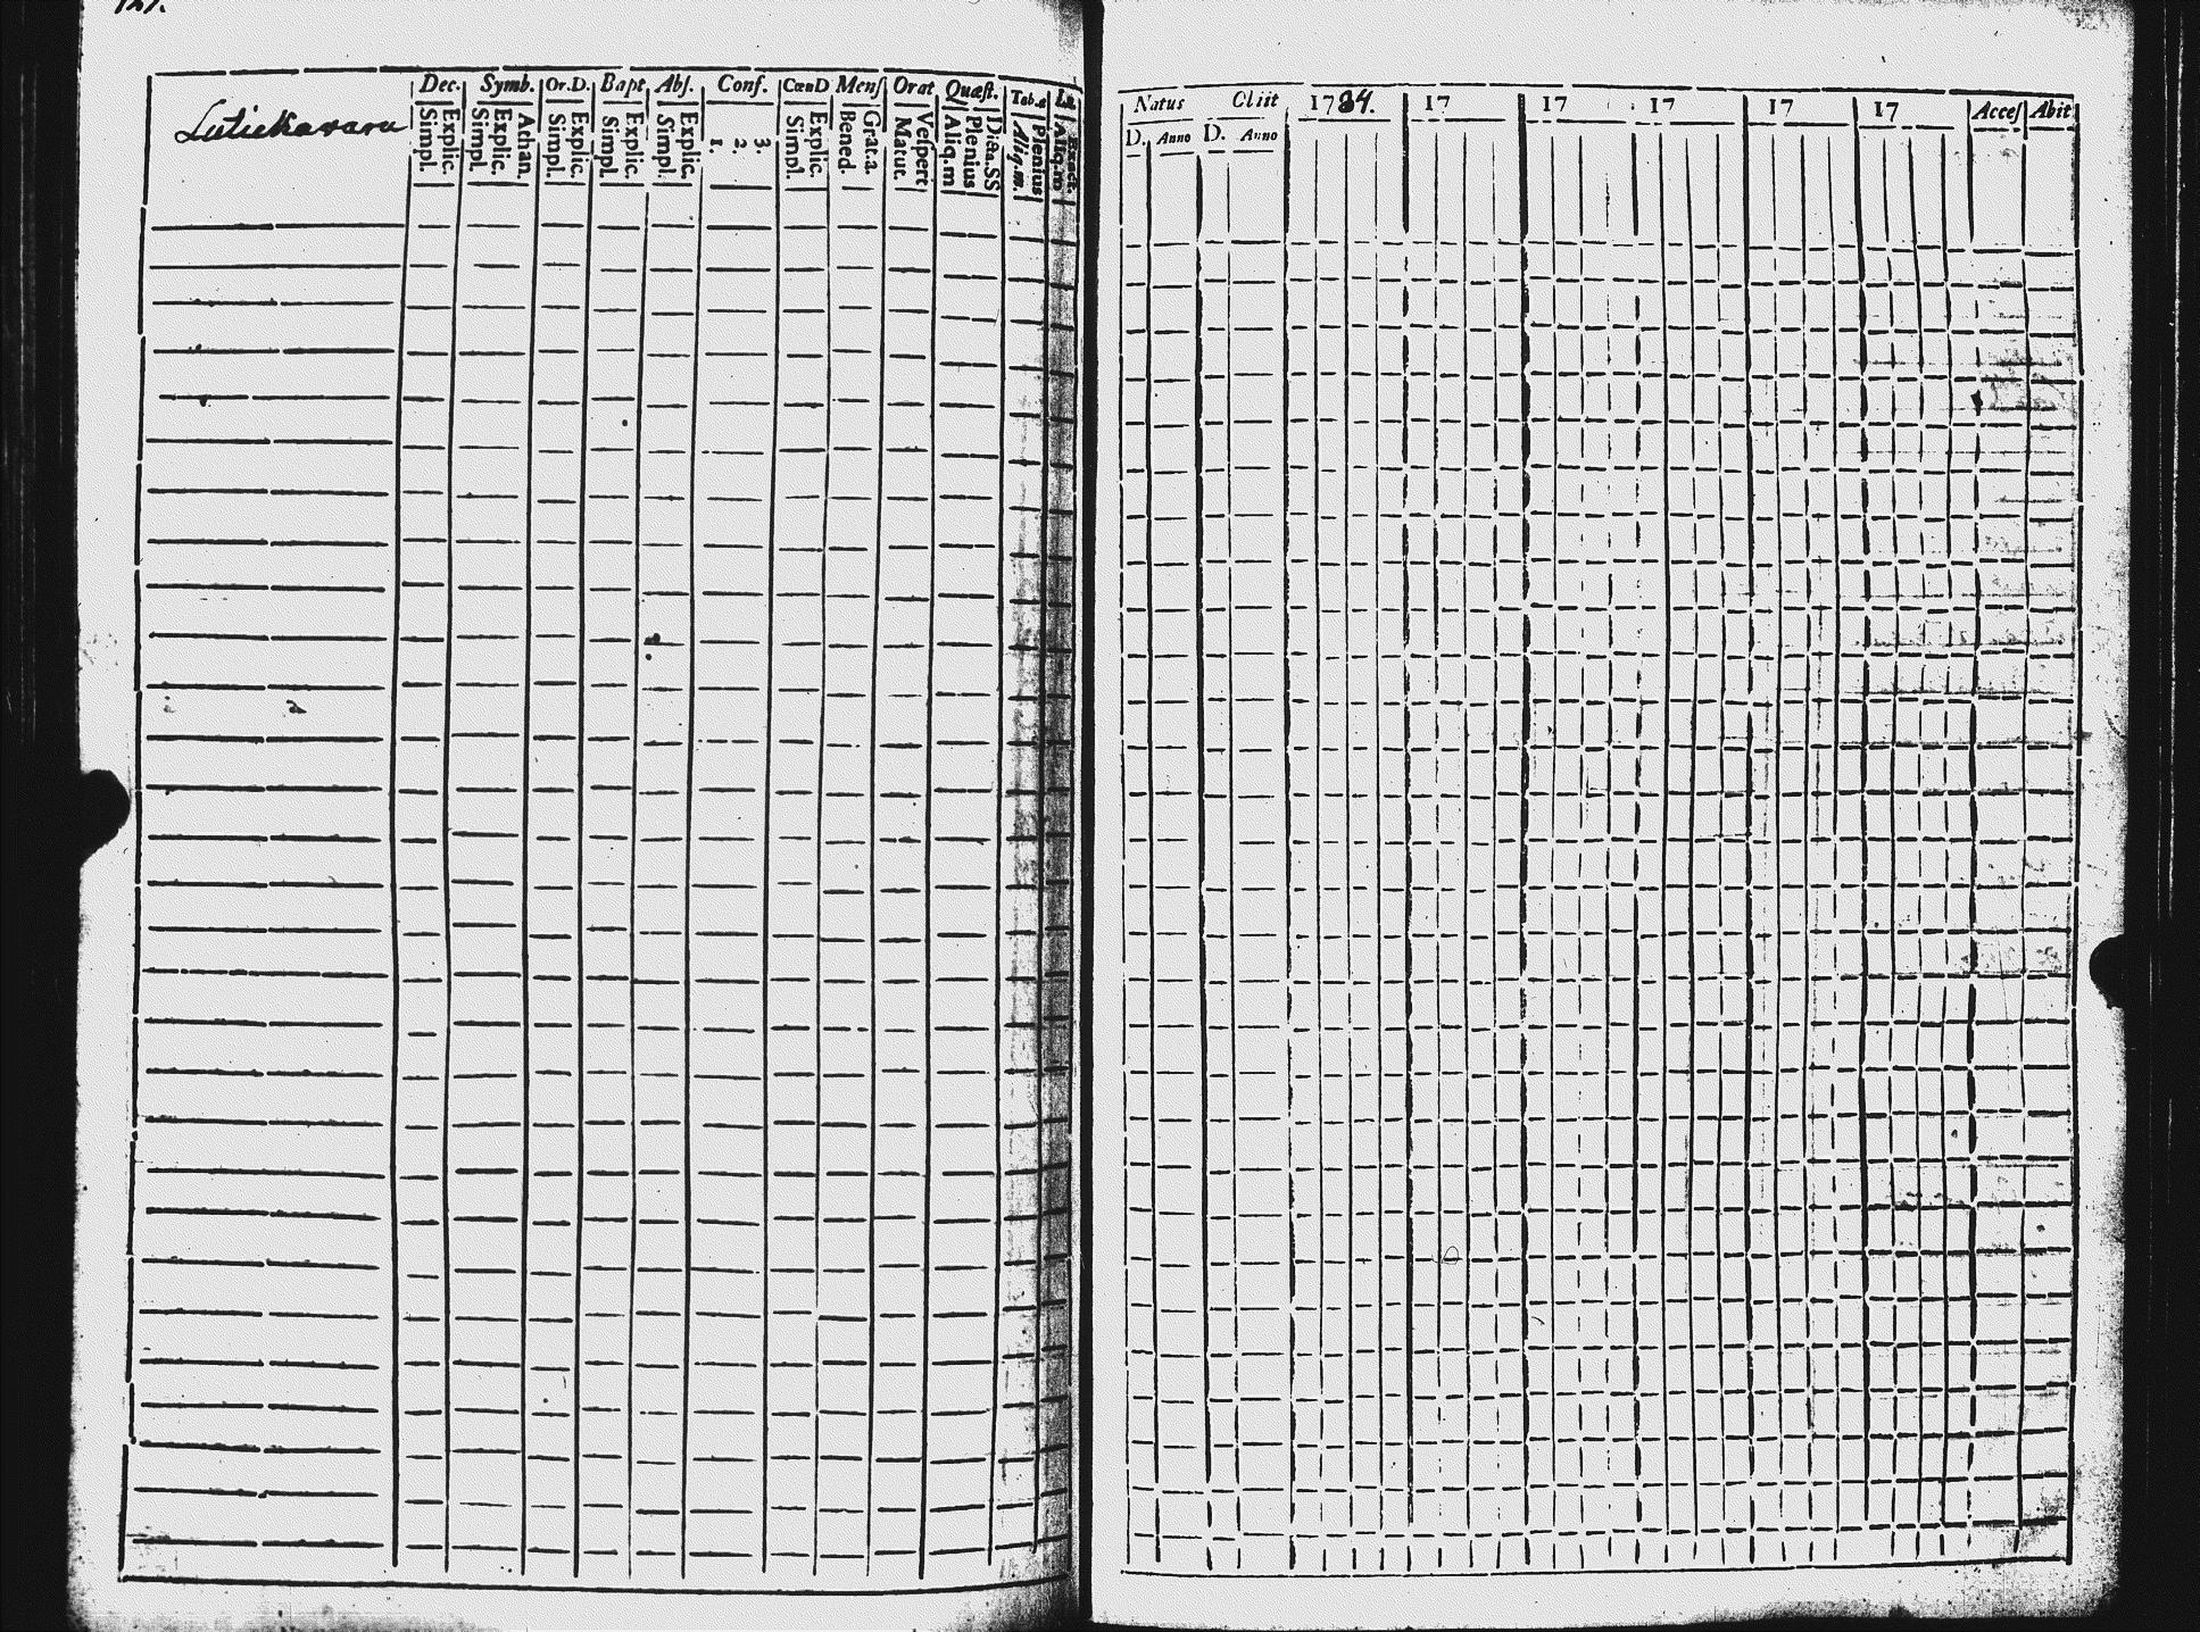 127.
Lutiekavara
Dec. Symb. Or.D. Bapt Abſ. Conf. CœnD Menſ Orat Quæſt. Tab.a
Explic. Simpl.
Athan. Explic. Simpl.
Explic. Simpl.
Explic. Simpl.
Explic. Simpl.
3. 2. 1.
Explic. Simpl.
Grat.a. Bened.
Veſpert Matut.
Dicta.SS Plenius Aliq.m
Plenius Aliq.m.
Exact. Aliq.m
Natus Obiit 1784. 17 17 17 17 17 Acceſ Abit
D. Anno D. Anno